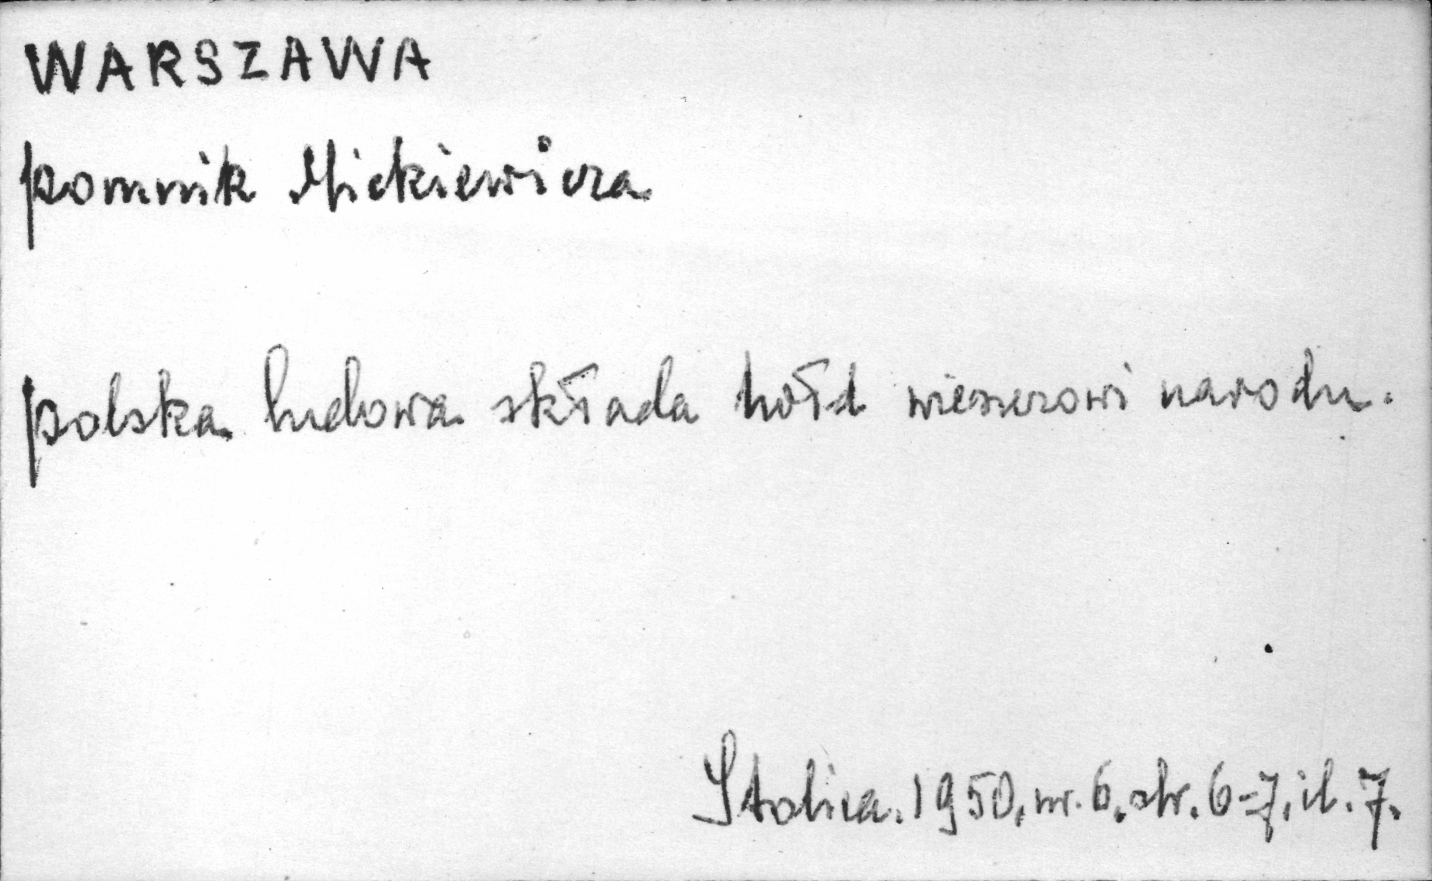 WARSZAWA
pomnik Mickiewicza
polska ludowa składa hołd wieszczowi narodu.
Stolica. 1950, nr. 6. str. 6-7, il. 7.